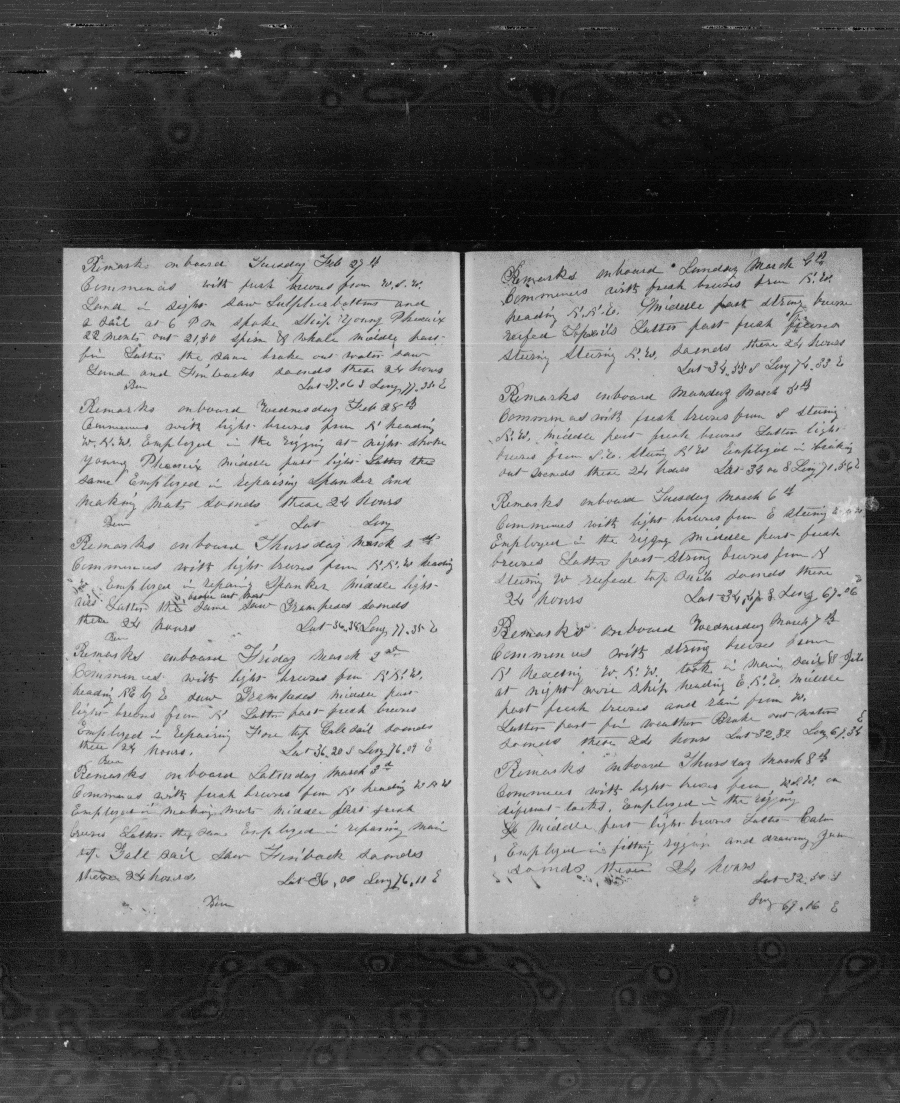 Remarks onboard Tuesday Feb 27th
Commences with fresh brewes from W.S.W.
Land in sight saw Sulpherbottoms and
a Sail at 6 P m spoke Ship Young Pheonix
22 months out 2130 Sperm & Whale middle part
fin Latter the same brake out water saw
Land and Finbacks soends these 24 hours
Lat 37.06 S Long 77.34 E
Remarks onboard Wednesday Feb 28th
Commences with light brewes from N heading
W.N.W. Employed in the rigging at night spoke
Young Pheonix middle part light Latter the
same Employed in repairing Spanker and
making mats soends these 24 hours
Lat Long
Remarks onboard Thursday March 1th
Commences with light brewes from N.N.W heading
Employed in repairing Spanker middle light
airs Latter the same saw Grampuses soends
these 24 hours Lat 36.38 Long 77.35 E
Remarks onboard Friday March 2nd
Commences with light brewes from N.N.W.
heading NE by E saw Grampuses middle part
light brewes from N Latter part fresh brewes
Employed in repairing Fore top Gale sail soends
these 24 hours. Lat 36.20 S Long 76.09 E
Remarks onboard Saturday March 3d
Commences with fresh brewes from N heading W N W
Employed in making mats middle part fresh
brewes Latter the same Employed in repairing main
top Gall sail Saw Finback soends
these 24 hours. Lat 36.00 Long 76.11 E
Remarks onboard Sunday March 4th
Commences with fresh brewes from N.W.
heading N.N.E. Middle part strong brewes
reefed Topsails Latter part fresh
steering N.W. soends these 24 hours
Lat 34.55 S Long 74.33 E
Remarks onboard Munday March 5th
Commences with fresh brewes from S steering
N.W. middle part fresh brewes Latter light
brewes from S.E. steering N W Employed in
out soends these 24 hours Lat 34 S Long 71.56 E
Remarks onboard Tuesday March 6th
Commences with light brewes from E steering
Employed in the rigging Middle part fresh
brewes Latter part strong brewes from N
steering W reefed top Sails soends these
24 hours Lat 34.47 S Long 67.06
Remarks onboard Wednesday March 7th
Commences with strong brewes from
N heading W.N.W. took in main sail & Jib
at night wore ship heading E.N.E. middle
part fresh brewes and rain from W.
Latter part fin weather Brake out water
soends these 24 hours Lat 32.32 Long 67.34 E
Remarks onboard Thursday March 8th
Commences with light brewes from W.S.W. on
diferent tacks. Employed in the rigging
Middle part light brewes Latter Calm
Employed in fitting riggin and drawing yarn
soends these 24 hours
Lat 32.50 S
Long 69.16 E